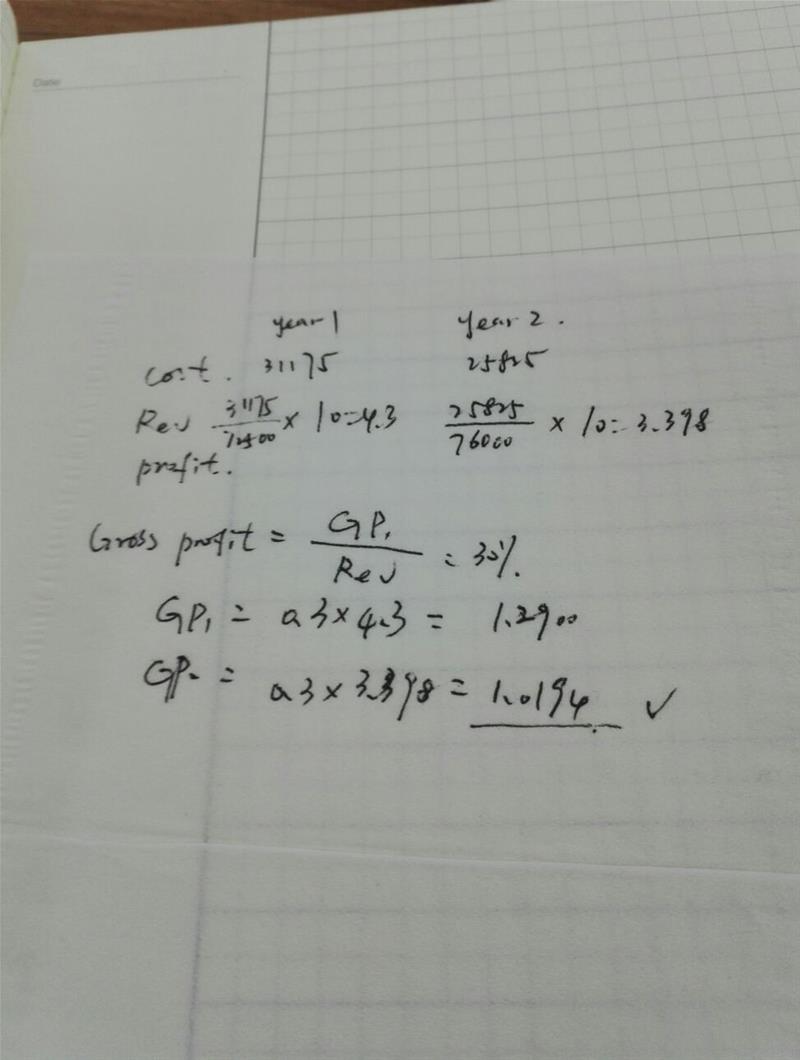 Date
year 1 year 2 .
cost . 31175 25825
Rev 31175/72500 × 10=4.3 25825/76000 × 10= 3.398
profit.
Gross profit = GP1/Rev = 30%.
GP1 = 0.3×4.3 = 1.2900
GP2 = 0.3×3.398 = 1.0194 ✓